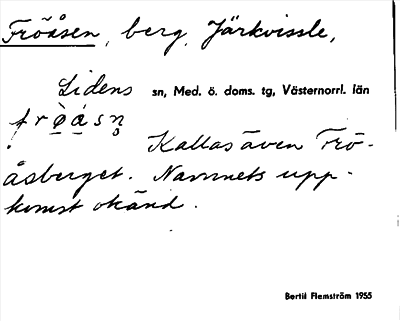 Fröåsen, berg, Järkvissle,
Lidens sn, Med. ö. doms. tg, Västernorrl. län
frø̀ásn̥
Kallas även Frö-
åsberget. Namnets upp-
komst okänd.
Bertil Flemström 1955